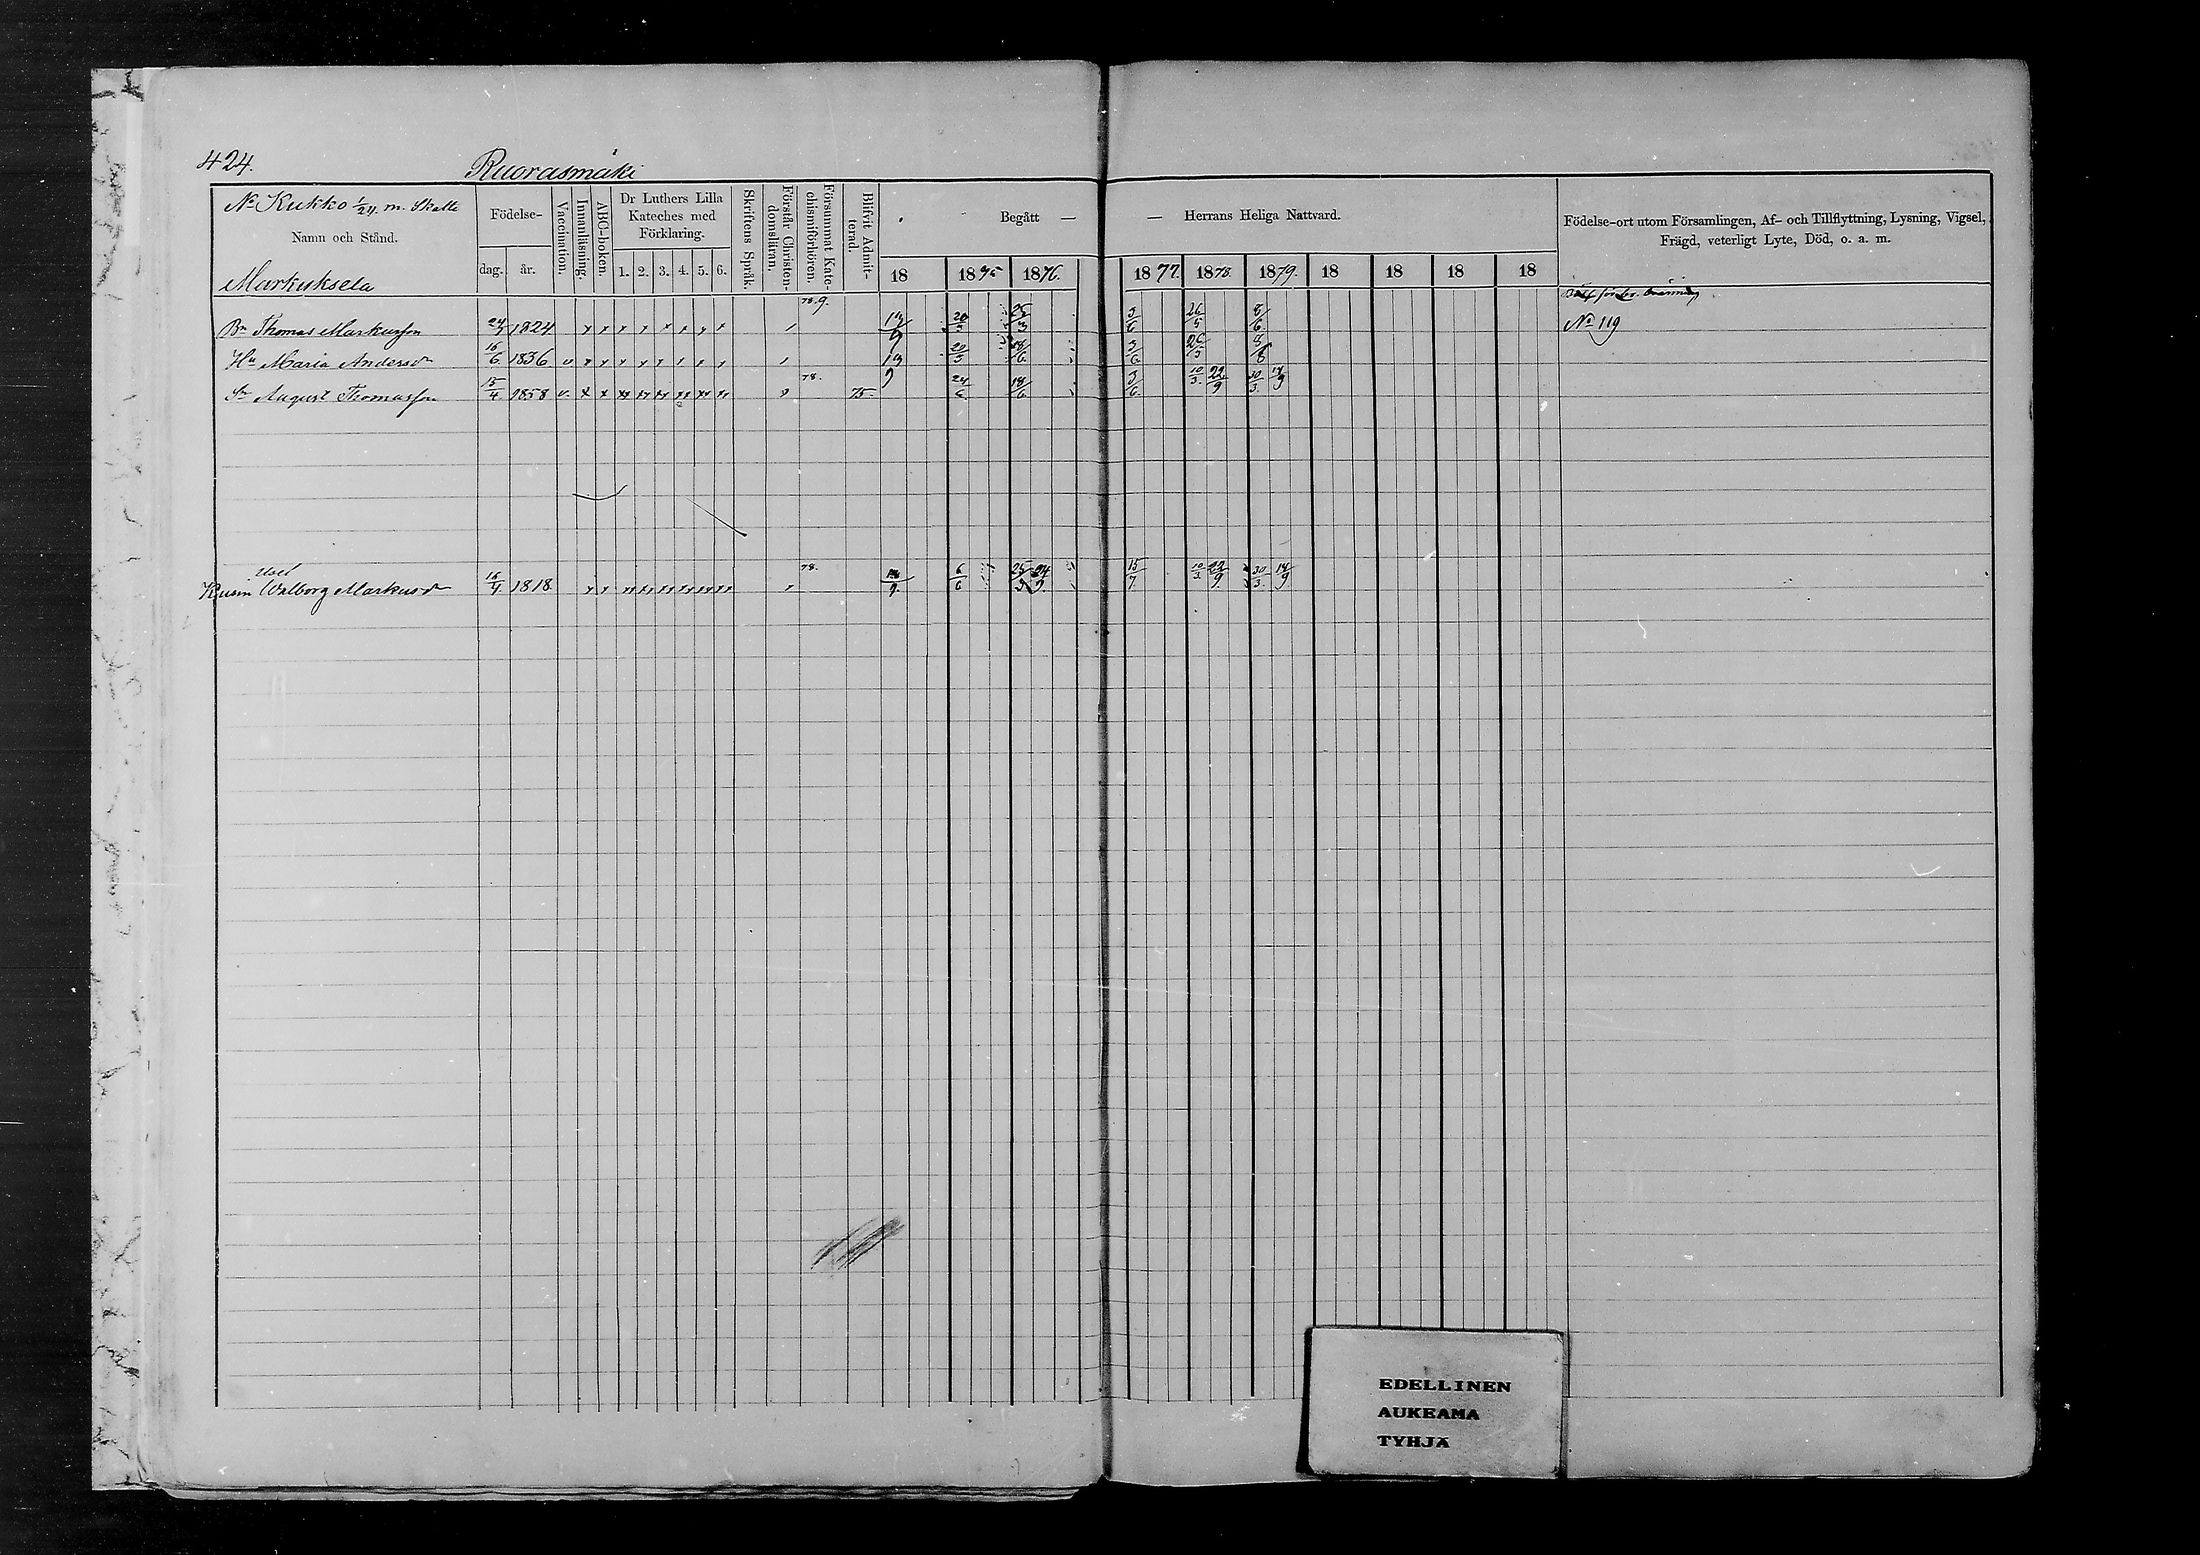 424. Ruorasmäki
No Kukko 1/24 m. Skatte
Namn och Stånd.
Markuksela
Födelse-
dag. år.
Vaccination.
Innanläsning.
ABC-boken.
Dr Luthers Lilla
Kateches med
Förklaring.
1. 2. 3. 4. 5. 6.
Skriftens Språk.
Förstår Christen-
domsläran.
Försummat Kate-
chismiförhören.
Blifvit Admit-
terad.
Begått — — Herrans Heliga Nattvard.
18 1875 1876. 1877. 1878. 1879. 18 18 18 18
Födelse-ort utom Församlingen, Af- och Tillflyttning, Lysning, Vigsel,
Frägd, veterligt Lyte, Död, o. a. m.
Bn Thomas Markusson 24/7 1824 78.9. 20/5 25/3 3/6 26/5 8/6 No 119
Hu Maria Andersdr 16/6 1836 v 20/5 18/6 3/6 26/5 8/6
Sn August Thomasson 13/4 1858 v. 78. 75. 24/6 18/6 3/6 10/3. 22/9 30/3. 14/9
Walborg Markusdr 16/4 1818 78. 6/6 25/3 24/9 15/7. 10/3. 22/9. 30/3. 14/9
EDELLINEN
AUKEAMA
TYHJÄ